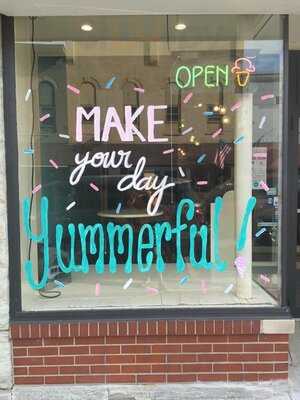 OPEN
MAKE
your
day
Yummerful!